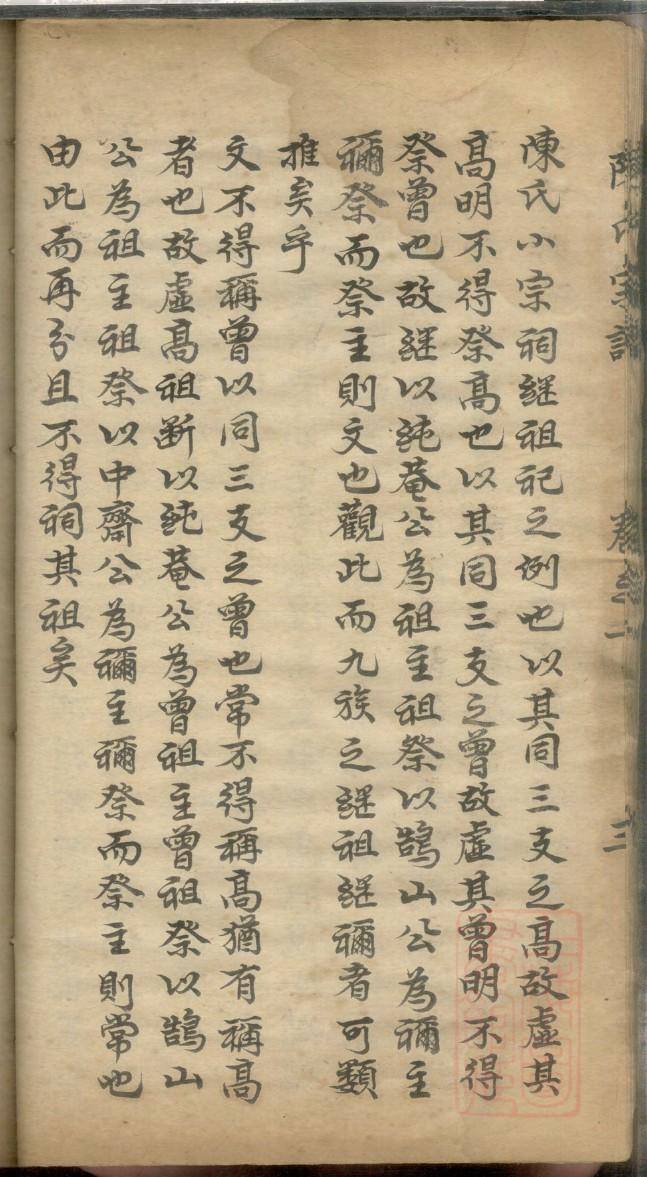 陳氏宗譜
三
陳氏小宗祠継祖祀之例也以其同三支之髙故虚其
髙明不得祭髙也以其同三支之曾故虚其曾明不得
祭曾也故継以純菴公為祖主祖祭以鵠山公為禰主
禰祭而祭主則文也觀此而九族之継祖継禰者可類
推矣乎
文不得稱曾以同三支之曾也常不得稱髙猶有稱髙
者也故虚髙祖断以純菴公為曾祖主曾祖祭以鵠山
公為祖主祖祭以中齋公為禰主禰祭而祭主則常也
由此而再分且不得祠其祖矣